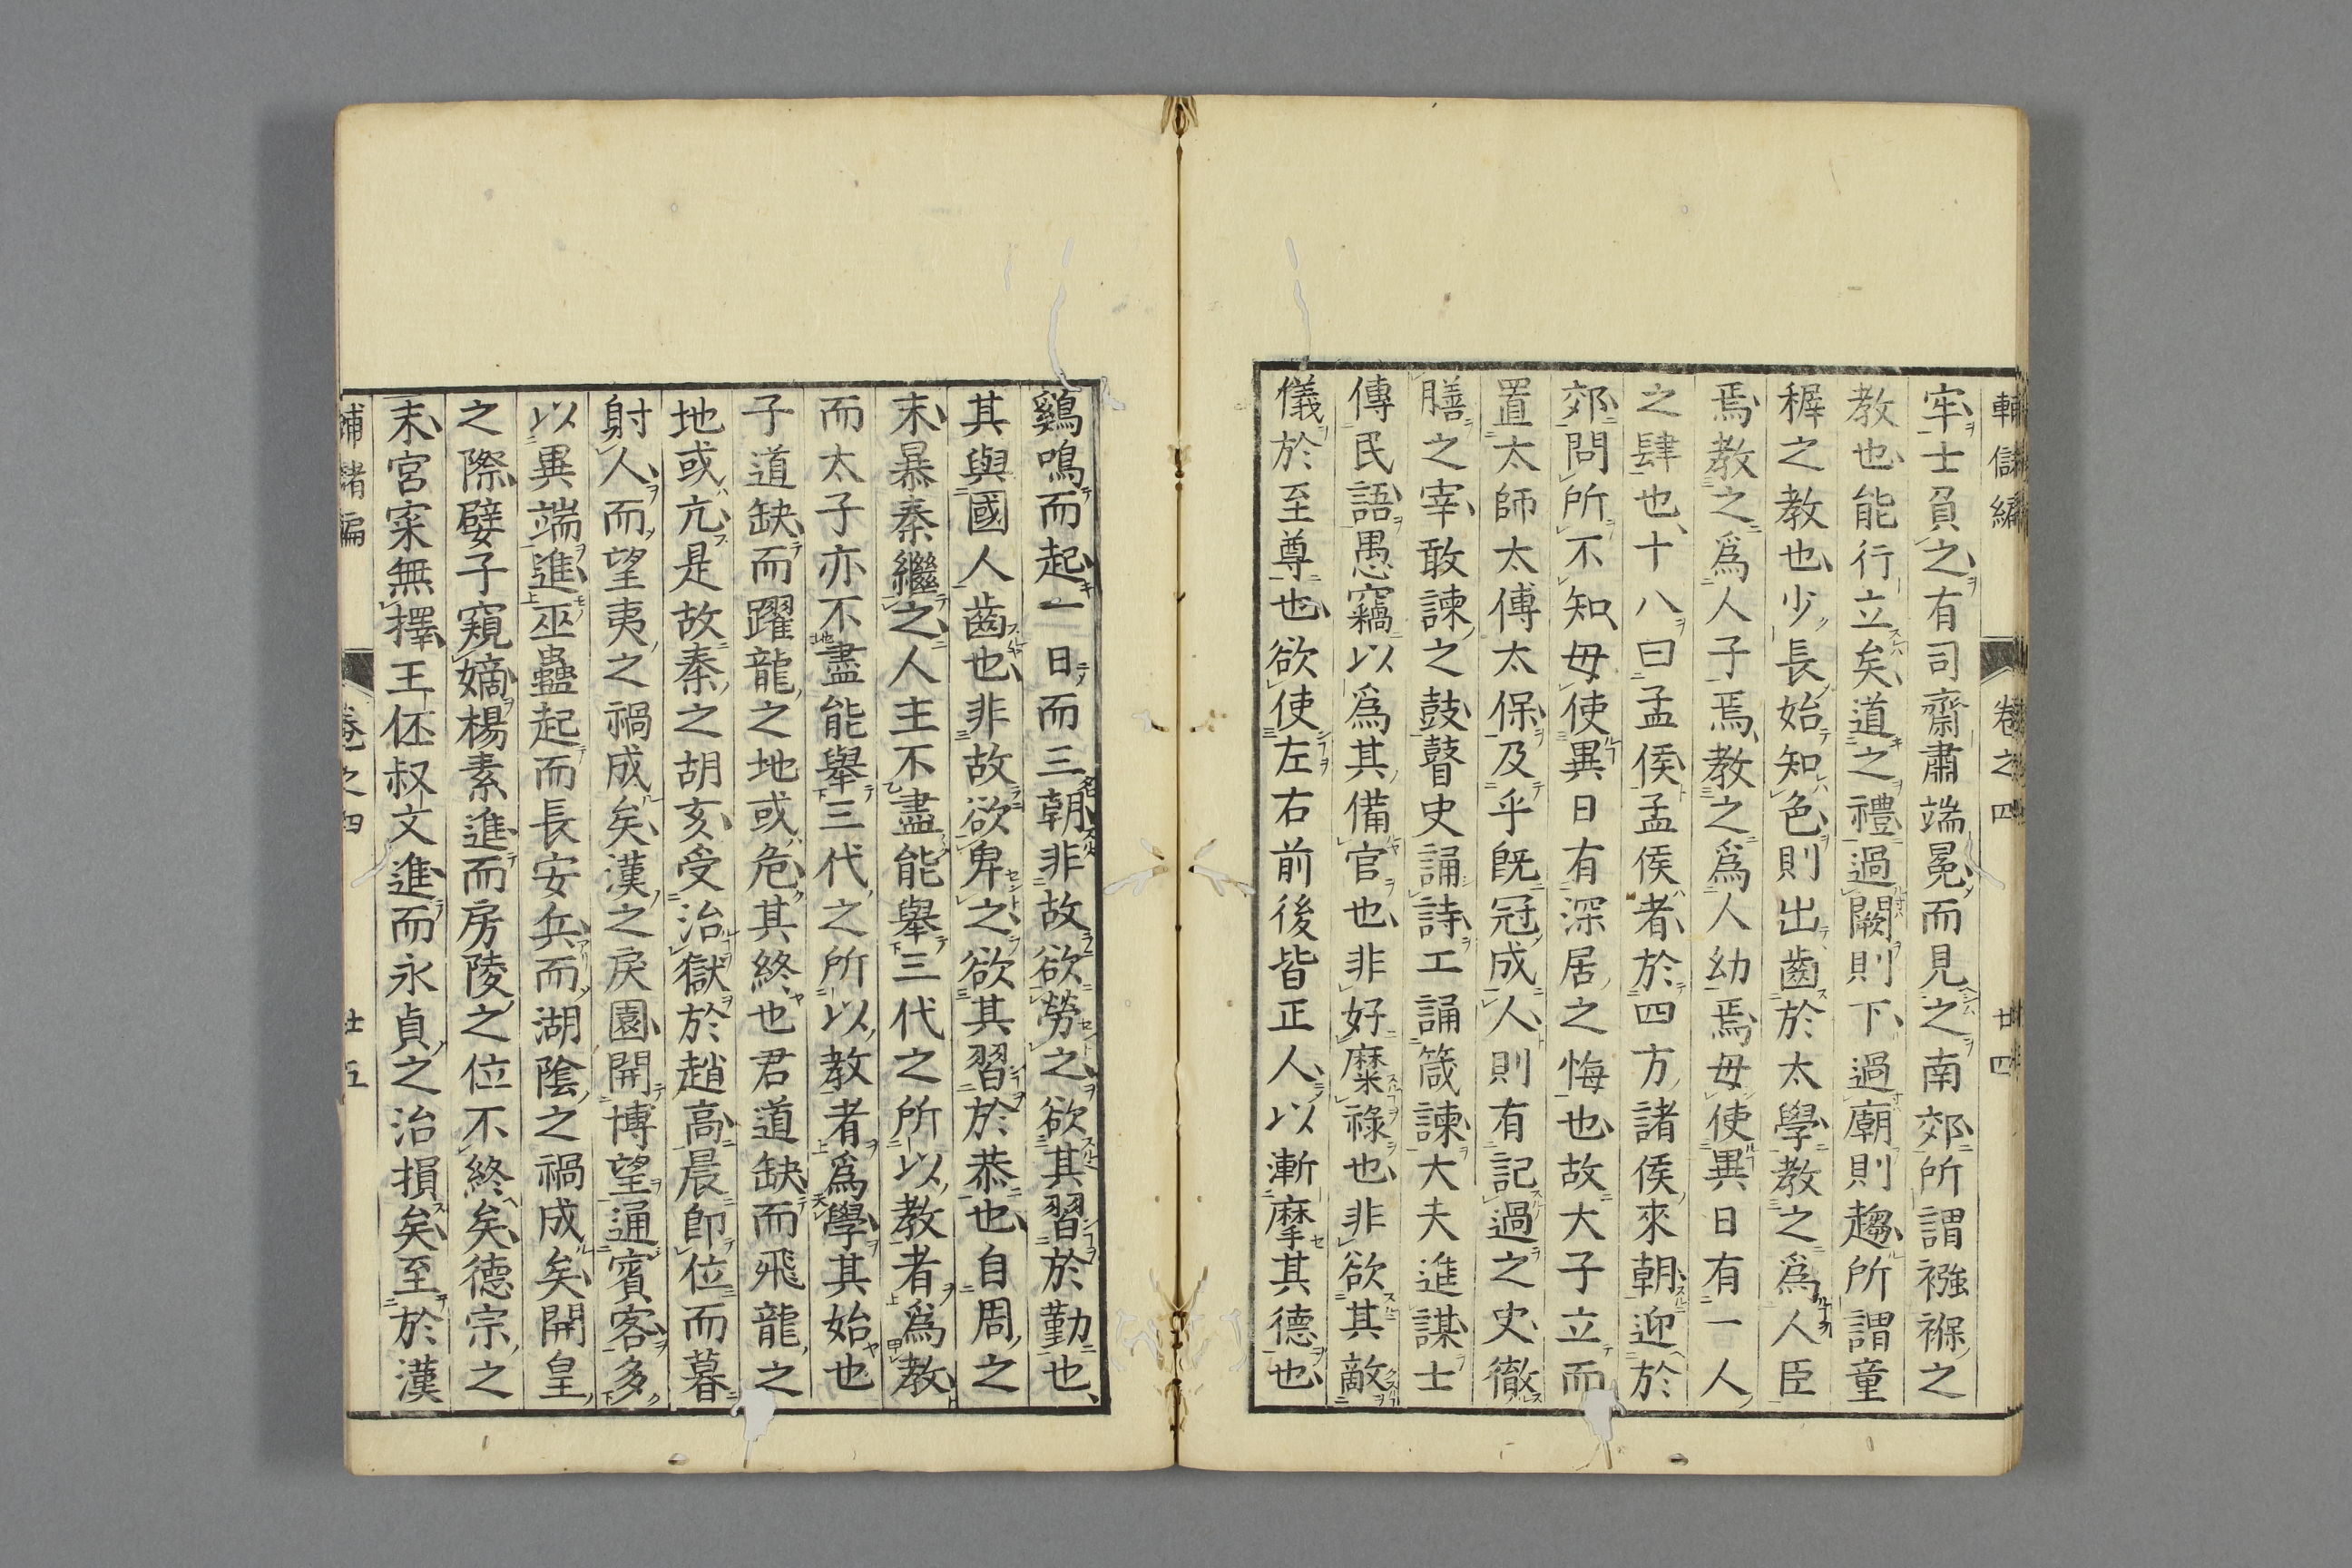 輔儲編 卷之四 廿四
牢士負之有司齋肅端冕而見之南郊所謂襁褓之
教也能行立矣道之禮過闕則下過廟則趨所謂童
穉之教也少長始知色則出齒於太學教之爲人臣
焉教之爲人子焉教之爲人幼焉毋使異日有一人
之肆也十八曰孟侯孟侯者於四方諸侯來朝迎於
郊問所不知毋使異日有深居之悔也故大子立而
置太師太傅太保及乎既冠成人則有記過之史徹
膳之宰敢諫之鼓瞽史誦詩工誦箴諫大夫進謀士
傳民語愚竊以爲其備官也非好糜祿也非欲其敵
儀於至尊也欲使左右前後皆正人以漸摩其德也
鷄鳴而起一日而三朝非故欲勞之欲其習於勤也
其與國人齒也非故欲卑之欲其習於恭也自周之
末暴秦繼之人主不盡能舉三代之所以教者爲教
而太子亦不盡能舉三代之所以教者爲學其始也
子道缺而躍龍之地或危其終也君道缺而飛龍之
地或亢是故秦之胡亥受治獄於趙高晨卽位而暮
射人而望夷之禍成矣漢之戾園開博望通賓客多
以異端進巫蠱起而長安兵而湖陰之禍成矣開皇
之際孼子窺嫡楊素進而房陵之位不終矣德宗之
末宮寀無擇王伾叔文進而永貞之治損矣至於漢
輔儲編 卷之四 廿五